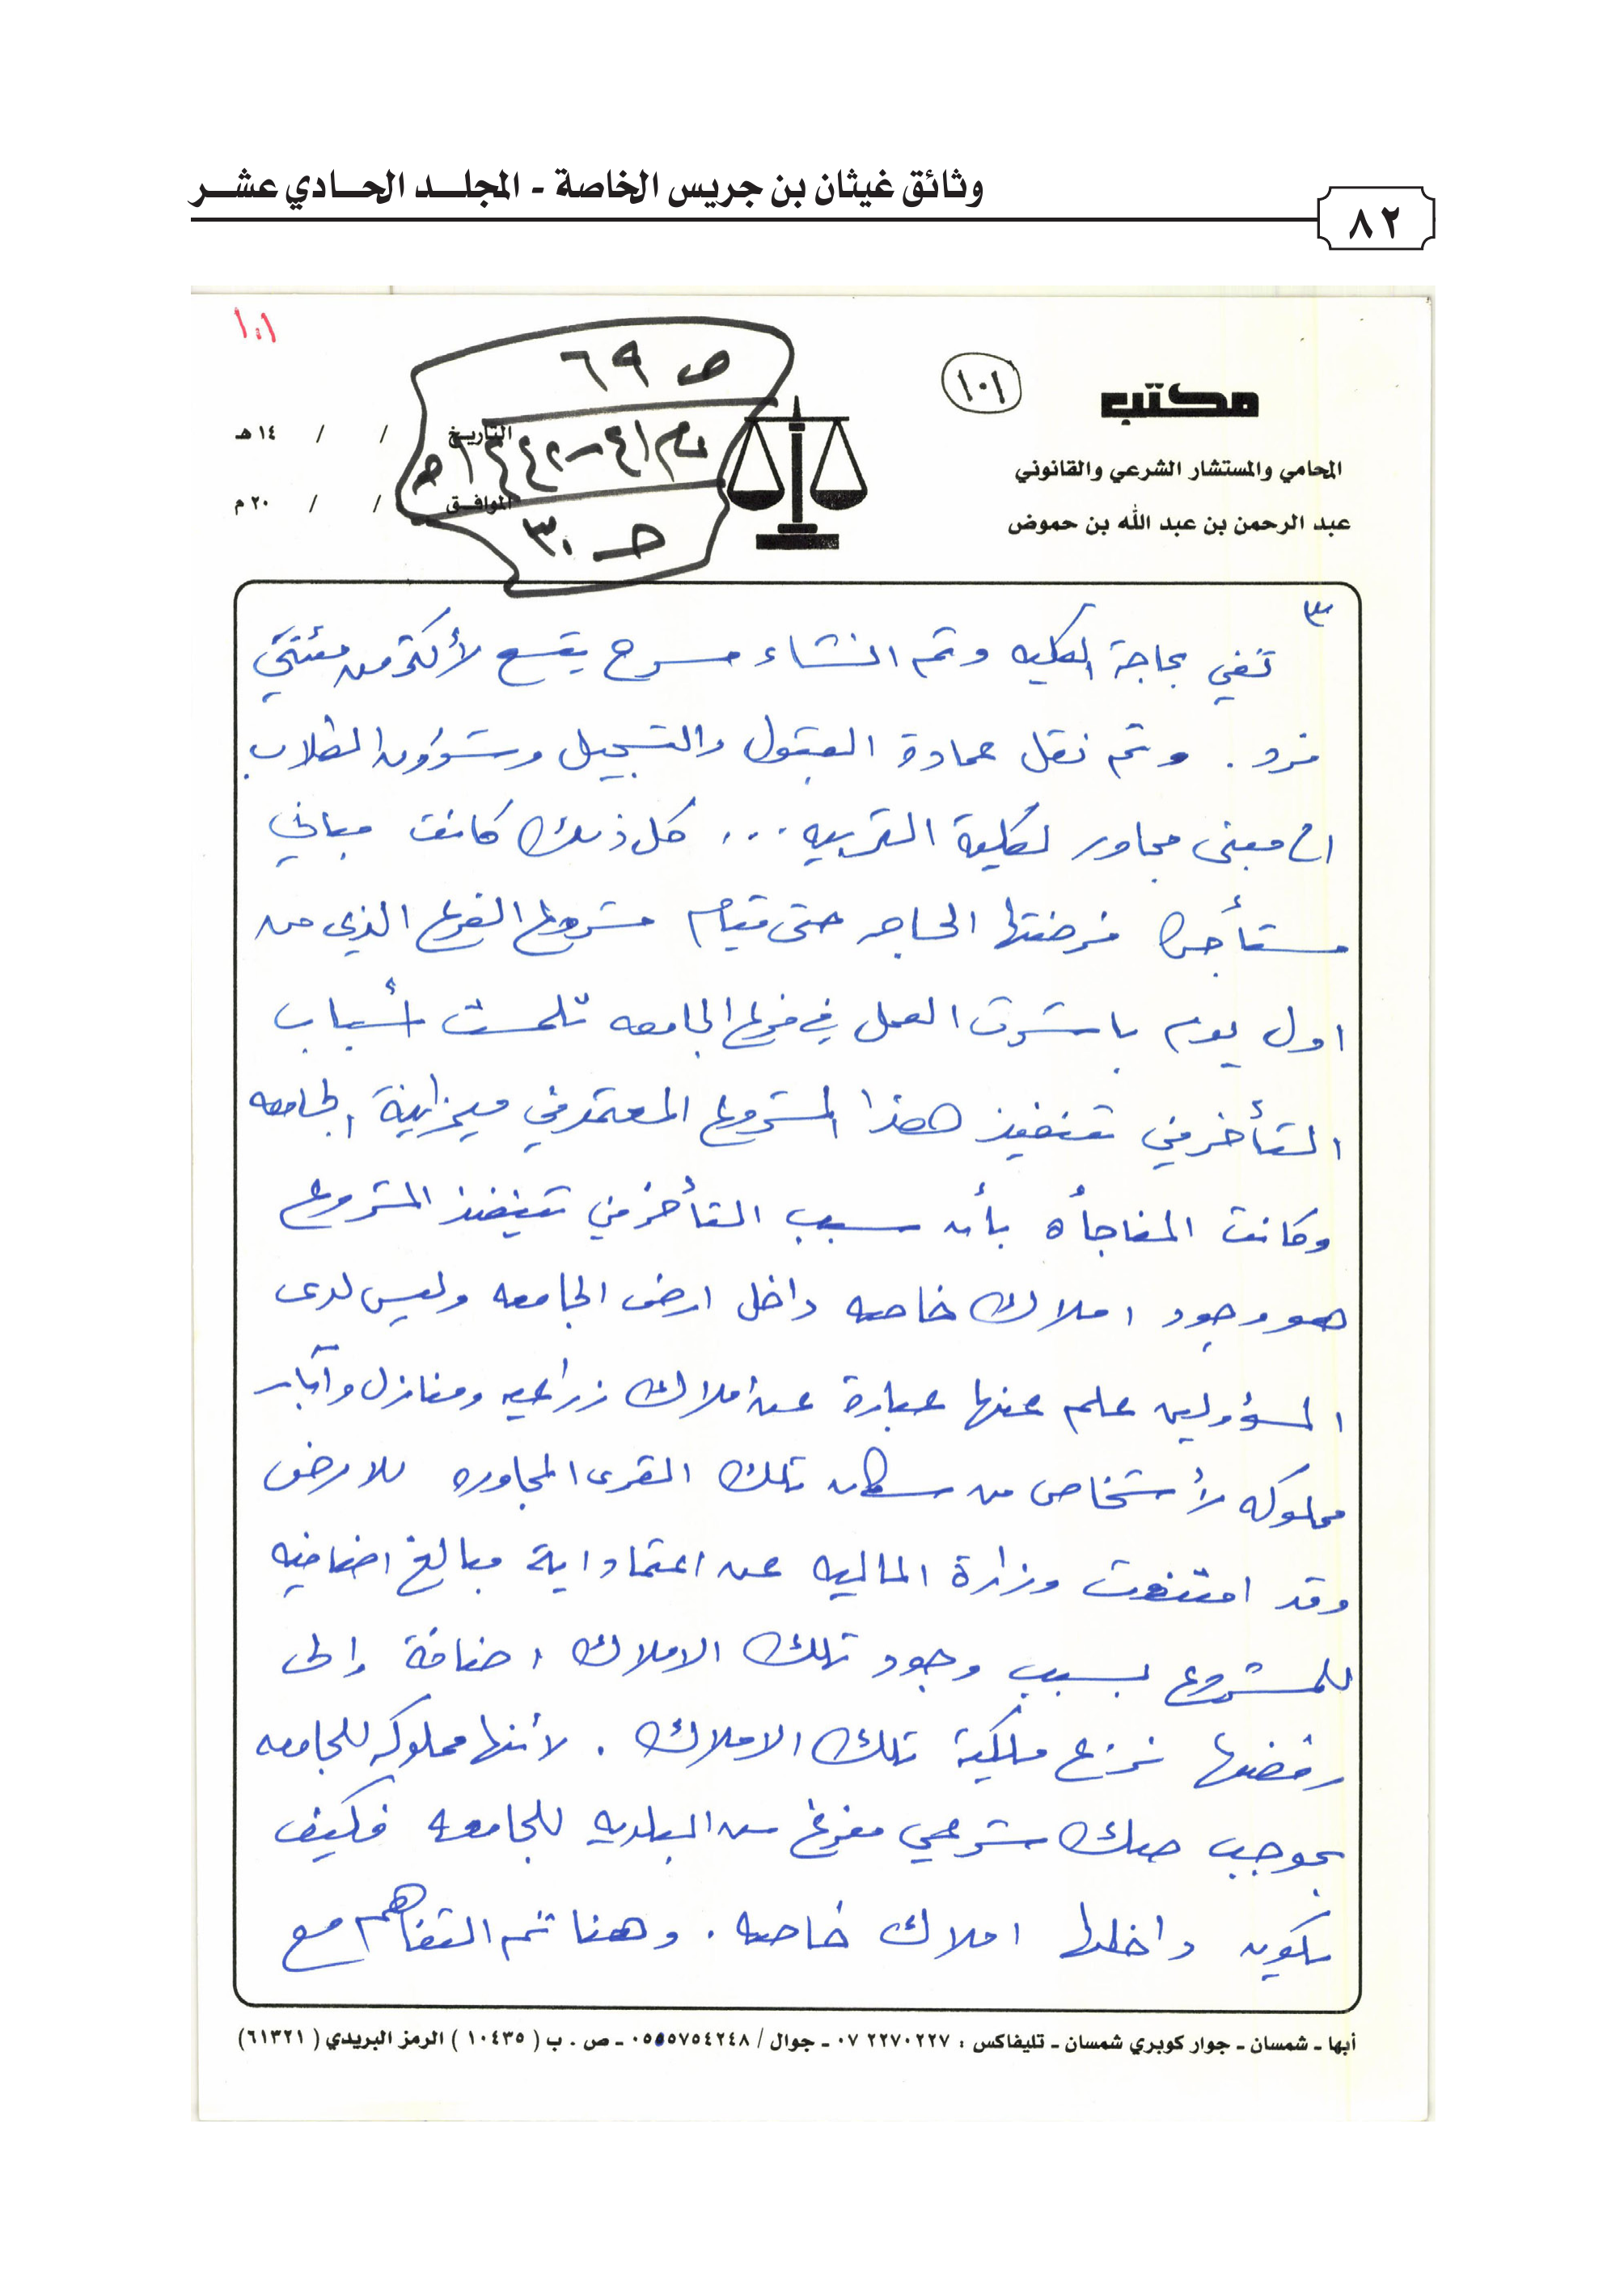 وثائق غيثان بن جريس الخاصة - المجلــد الحــادي عشــر
٨٢
١٠١
ص ٦٩
١٠١
مكتب
المحامي والمستشار الشرعي والقانوني
عبد الرحمن بن عبد الله بن حموض
التاريخ / / ١٤هـ
الموافــق / / ٢٠م
عام ٤١-١٤٤٢هـ
جـ ٣٠
٣
تفي بحاجة الكليه وتم انشاء مسرح يتسع لأكثر من مئتي
فرد . وتم نقل عمادة القبول والتسجيل وشؤون الطلاب
الى مبنى مجاور لكلية التربيه ... كل ذلك كانت مباني
مستأجره فرضتها الحاجه حتى قيام مشروع الفرع الذي من
اول يوم باشرت العمل في فرع الجامعه تلمست أسباب
التأخر في تنفيذ هذا المشروع المعتمد في ميزانية الجامعه
وكانت المفاجأه بأن سبب التأخر في تنفيذ المشروع
هو وجود املاك خاصه داخل ارض الجامعه وليس لدى
المسؤولين علم عنها عبارة عن املاك زراعيه ومنازل وآبار
مملوكه لأشخاص من سكان تلك القرى المجاوره للارض
وقد امتنعت وزارة الماليه عن اعتماد اية مبالغ اضافيه
للمشروع بسبب وجود تلك الاملاك اضافة إلى
رفضها نزع ملكية تلك الاملاك . لأنها مملوكه للجامعه
بموجب صك شرعي مفرغ من البلديه للجامعه فكيف
يكون داخلها املاك خاصه . وهنا تم التفاهم مع
أبها ـ شمسان ـ جوار كوبري شمسان ـ تليفاكس : ٢٢٧٠٢٢٧ ٠٧ ـ جوال / ٠٥٥٥٧٥٤٢٤٨ ـ ص . ب ( ١٠٤٣٥ ) الرمز البريدي ( ٦١٣٢١)